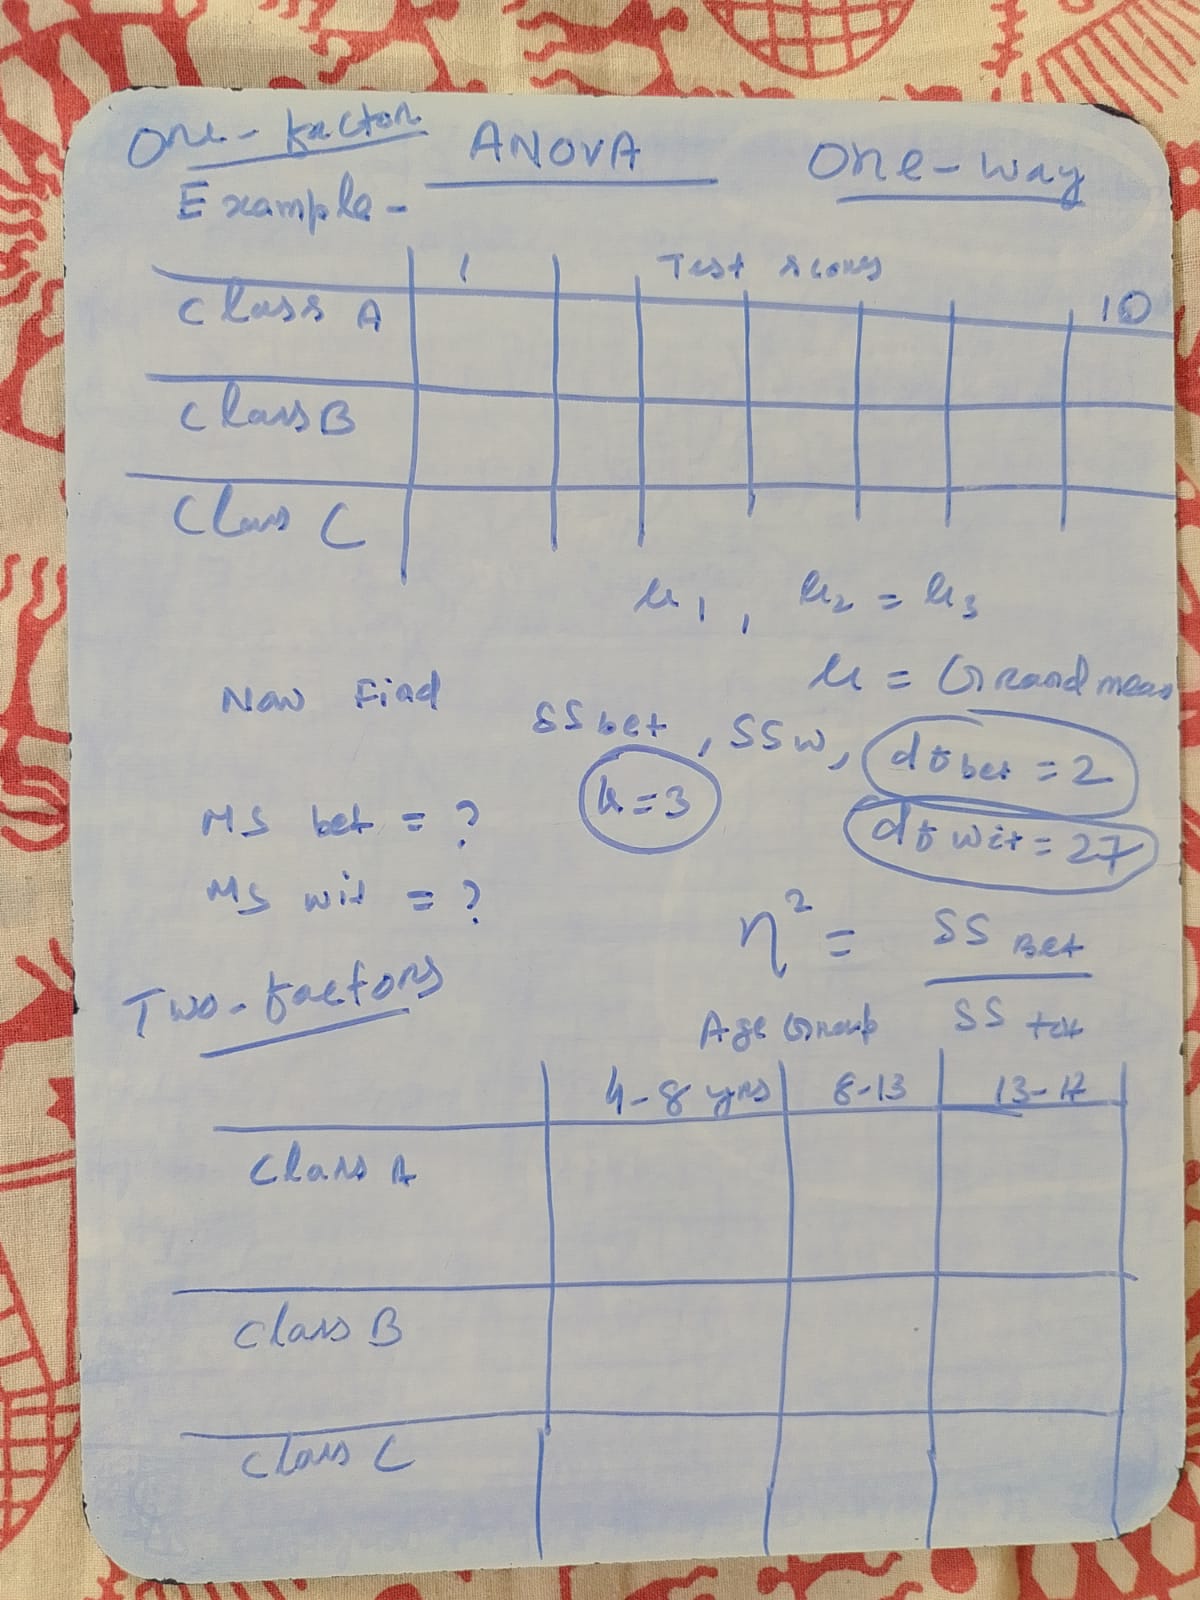 One-factor ANOVA One-way
Example-
1 Test scores 10
Class A
Class B
Class C
μ1, μ2 = μ3
μ = Grand mean
Now Find SSbet, SSw, dfbet = 2
k=3
MS bet = ? df wit = 27
MS wit = ?
η² = SS Bet / SS tot
Two-factors
Age Group
4-8 yrs 8-13 13-17
Class A
Class B
Class C